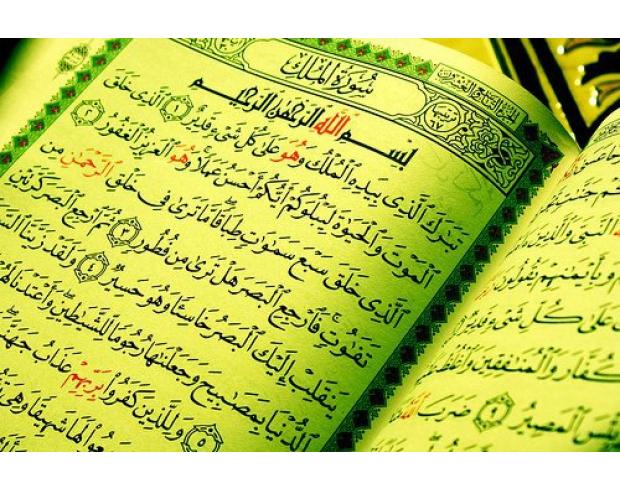 سُورَةُ الْمُلْكِ
بِسْمِ اللَّهِ الرَّحْمَٰنِ الرَّحِيمِ
تَبَٰرَكَ ٱلَّذِى بِيَدِهِ ٱلْمُلْكُ وَهُوَ عَلَىٰ كُلِّ شَىْءٍ قَدِيرٌ ١ ٱلَّذِى خَلَقَ
ٱلْمَوْتَ وَٱلْحَيَوٰةَ لِيَبْلُوَكُمْ أَيُّكُمْ أَحْسَنُ عَمَلًا وَهُوَ ٱلْعَزِيزُ ٱلْغَفُورُ ٢
ٱلَّذِى خَلَقَ سَبْعَ سَمَٰوَٰتٍ طِبَاقًا مَّا تَرَىٰ فِى خَلْقِ ٱلرَّحْمَٰنِ مِن
تَفَٰوُتٍ فَٱرْجِعِ ٱلْبَصَرَ هَلْ تَرَىٰ مِن فُطُورٍ ٣ ثُمَّ ٱرْجِعِ ٱلْبَصَرَ كَرَّتَيْنِ
يَنقَلِبْ إِلَيْكَ ٱلْبَصَرُ خَاسِئًا وَهُوَ حَسِيرٌ ٤ وَلَقَدْ زَيَّنَّا
ٱلدُّنْيَا بِمَصَٰبِيحَ وَجَعَلْنَٰهَا رُجُومًا لِّلشَّيَٰطِينِ وَأَعْتَدْنَا لَهُمْ
٥ وَلِلَّذِينَ كَفَرُوا۟ بِرَبِّهِمْ عَذَابُ جَهَنَّمَ
لَهَا شَهِيقًا وَهِىَ
ٱلنَّبِىَّ وَٱلَّذِينَ
وَبِأَيْمَٰنِهِمْ يَقُولُونَ
عَلَىٰ كُلِّ شَىْءٍ قَدِيرٌ
وَٱلْمُنَٰفِقِينَ وَٱغْلُظْ
ٱلْمَصِيرُ ٩ ضَرَبَ ٱللَّهُ